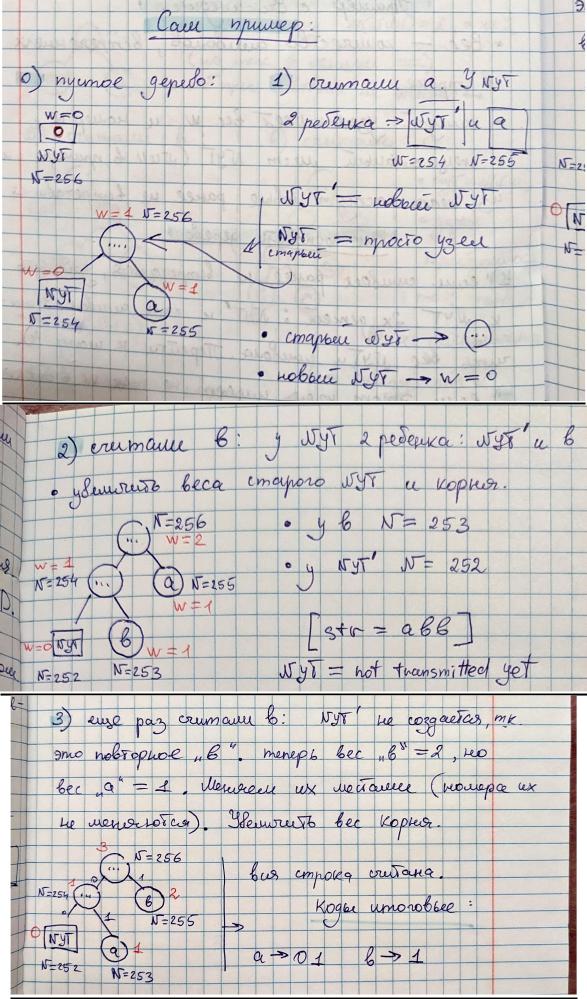 Сам пример:
0) пустое дерево:
w=0
0
NYT
N=256
1) считали a. У NYT
2 ребенка → NYT' и a
N=254 N=255
NYT' = новый NYT
NYT старый = просто узел
w=1 N=256
....
w=0
NYT
N=254
w=1
a
N=255
• старый NYT → ...
• новый NYT → w=0
2) считали b: у NYT 2 ребенка: NYT' и b
• увеличить веса старого NYT и корня.
N=256
...
w=2
w=1
N=254
...
a N=255
w=1
w=0 NYT
N=252
b w=1
N=253
• у b N=253
• у NYT' N=252
[str = abb]
NYT = not transmitted yet
3) еще раз считали b: NYT' не создается, т.к.
это повторное „b“. теперь вес „b“=2, но
вес „a“=1. Меняем их местами (номера их
не меняются). Увеличить вес корня.
3
... N=256
0 1
1
N=254 ...
b 2
N=255
0 1
0 NYT
N=252
a 1
N=253
вся строка считана.
Коды итоговые:
→
a → 01 b → 1